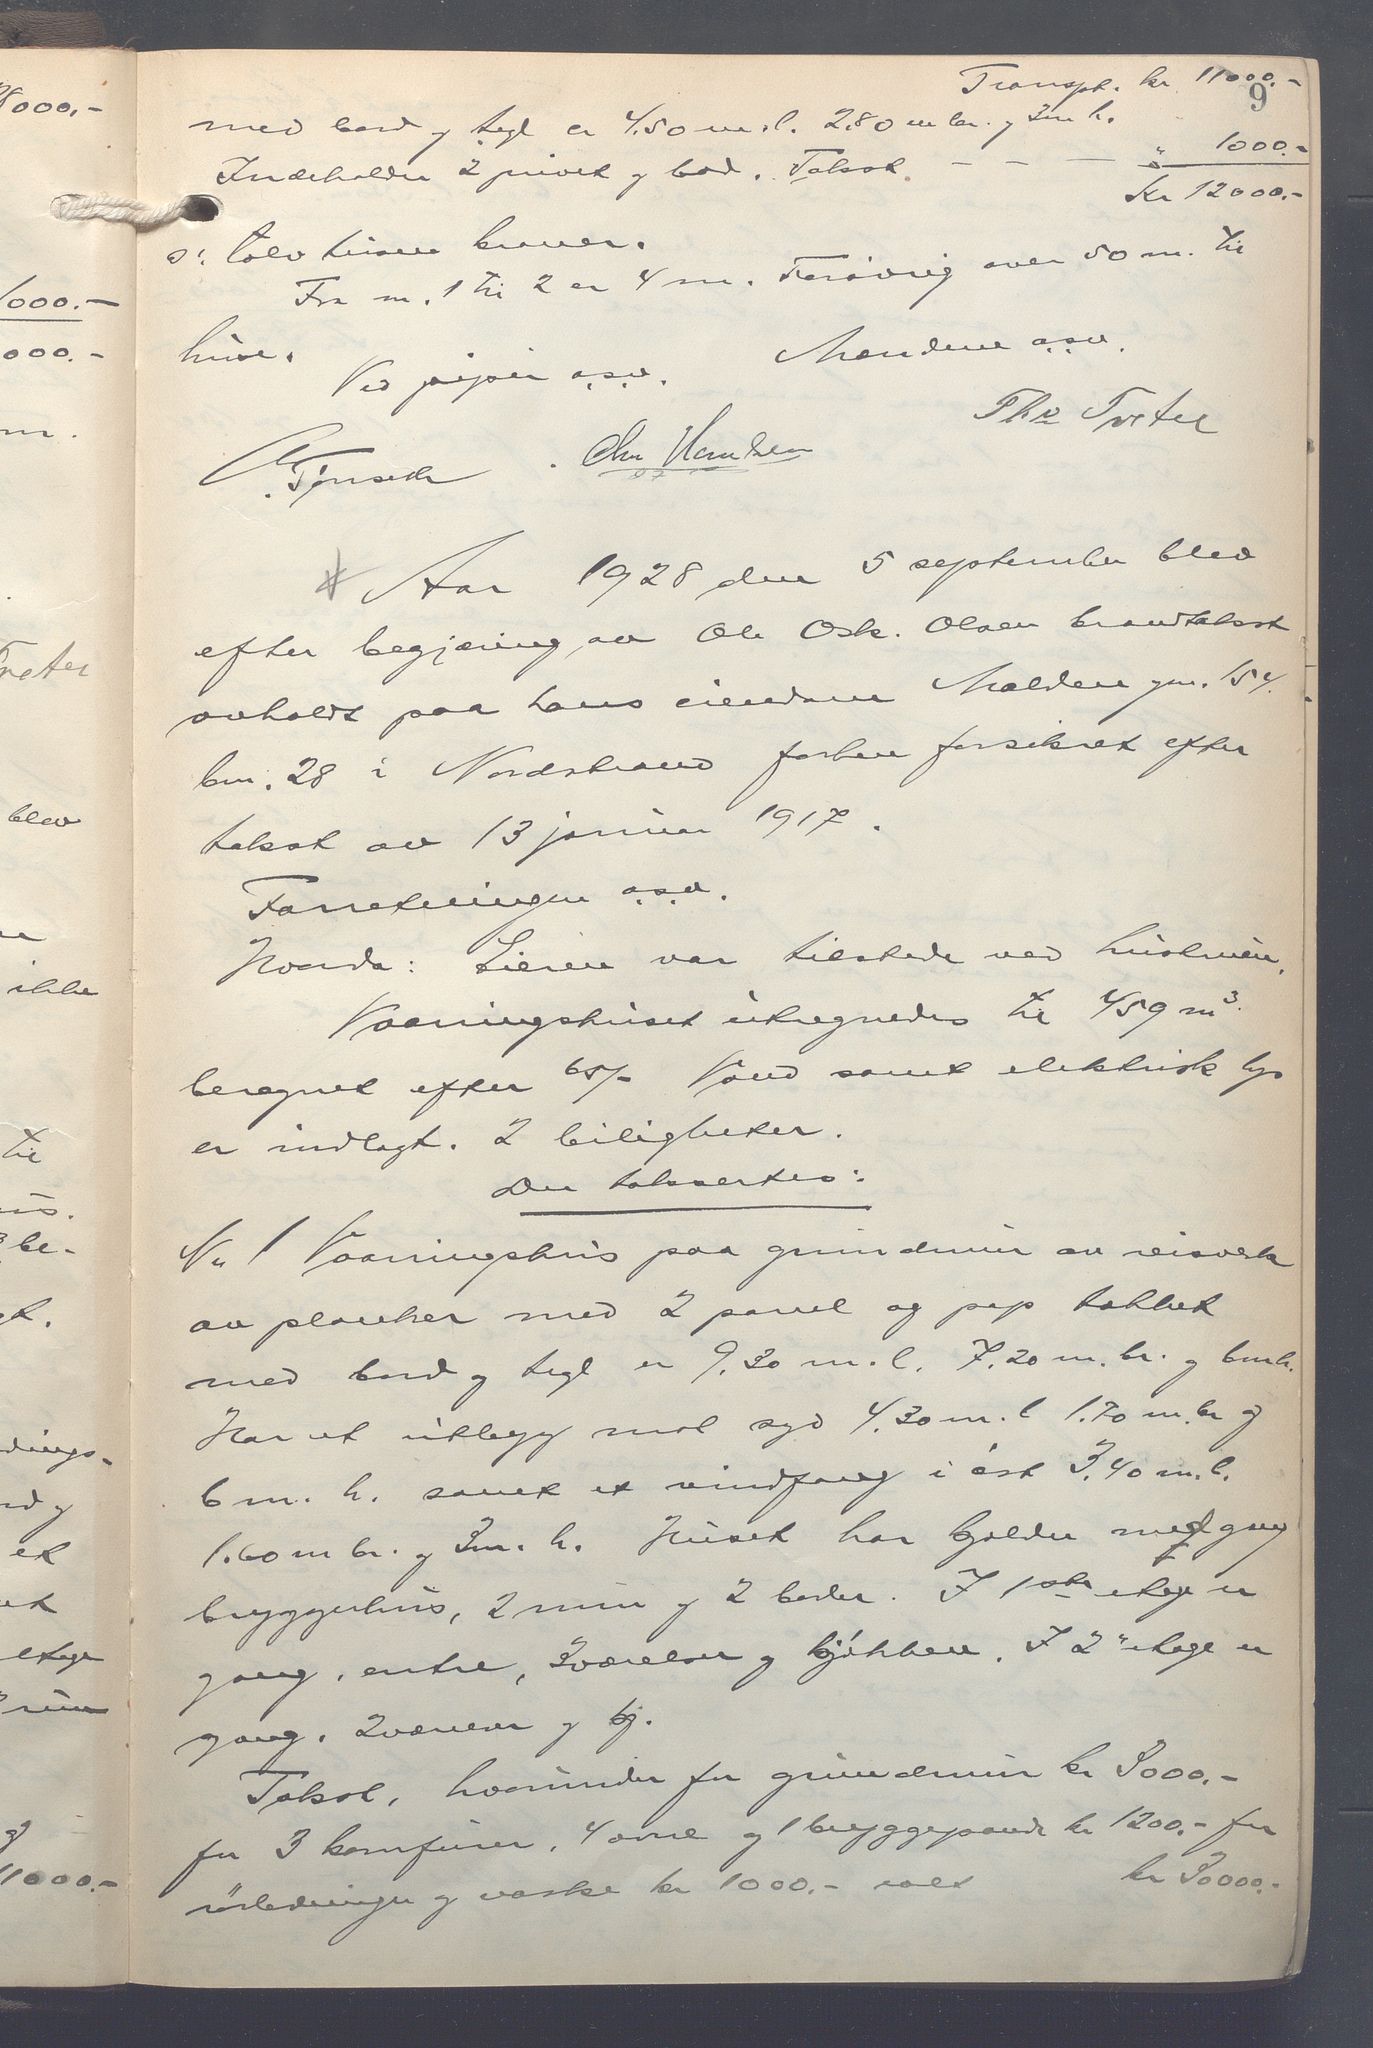 Transpt. kr 11000.-
9
med bord og tegl er 4.50 m.l. 2.80 m br. og 3 m h.
Indeholder 2 privet og bod. Takst. - - - " 1000.-
Kr 12000.-
o: tolv tusen kroner.
Fra m. 1 til 2 er 4 m. Forøvrig over 50 m. til
huse.
Ved piper o.s.v. Mændene o.s.v.
Tønseth Chr Thr Treter
Aar 1928 den 5 september blev
efter begjæring av Ole Osk. Olsen brandtakst
avholdt paa hans eiendom gn. 154.
bn. 28 i Nordstrand forhen forsikret efter
takst av 13 januar 1917.
Forretningen o.s.v.
Hvorda: Eieren var tilstede ved hustruen.
Vaaningshuset utregnedes til 459 m³.
beregnet efter 65/- Vand samt elektrisk lys
er indlagt. 2 leiligheter.
Der taksertes:
No 1 Vaaningshus paa grundmur av reisverk
av planker med 2 panel og pap tækket
med bord og tegl er 9.30 m.l. 7.20 m. br. og 6 m h.
Har et utbygg mot syd 4.30 m.l 1.70 m. br og
6 m. h. samt et vindfang i øst 3.40 m.l.
1.60 m br. og 3 m. h. Huset har kjelder med gang
bryggerhus, 2 rum og 2 boder. I 1ste etage er
gang, entre, 3 værelser og kjøkken. I 2" etage er
gang. 2 værelser og kj.
Takst, hvorunder for grundmur kr 3000.-
for 3 komfurer, 4 ovne og 1 bryggepande kr 1200.- for
rørledninger og vaske kr 1000.- ialt kr 30000.-
28000.-
1000.-
000.-
m.
Treter
blev
ikke
til
be-
et
etage
rum
11000.-